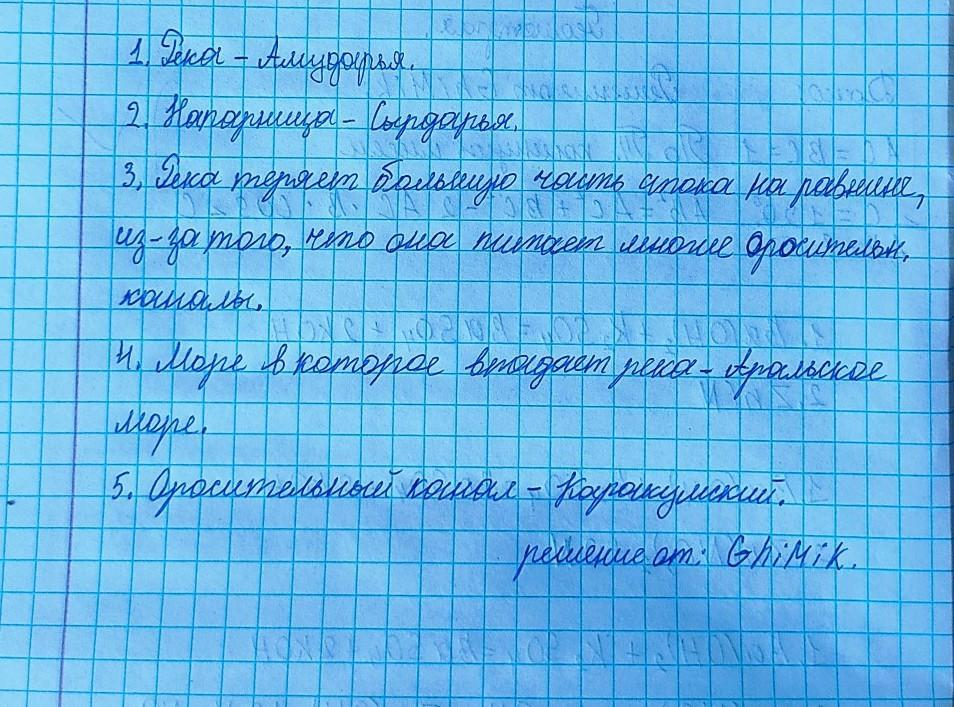 1. Река – Амударья.
2. Напарница – Сырдарья.
3. Река теряет большую часть стока на равнине,
из-за того, что она питает многие оросительн.
каналы.
4. Море в которое впадает река – Аральское
море.
5. Оросительный канал – Каракумский.
решение от: GhiMiK.